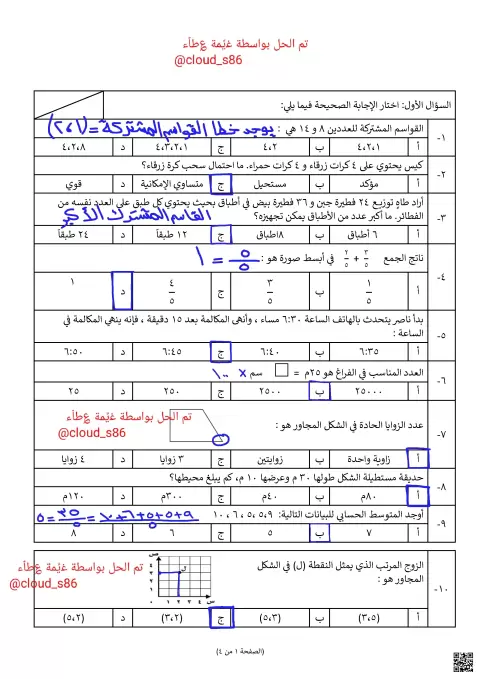 تم الحل بواسطة غيْمة عطآء
@cloud_s86
السؤال الأول: اختار الإجابة الصحيحة فيما يلي:
١-
القواسم المشتركة للعددين ٨ و ١٤ هي : يوجد خطا القواسم المشتركة = (٢،١)
أ ٤،٢،١ ب ٤،٢ ج ٤،٣،٢،١ د ٤،٢،٨
٢-
كيس يحتوي على ٤ كرات زرقاء و ٤ كرات حمراء. ما احتمال سحب كرة زرقاء؟
أ مؤكد ب مستحيل ج متساوي الإمكانية د قوي
٣-
أراد طاهٍ توزيع ٢٤ فطيرة جبن و ٣٦ فطيرة بيض في أطباق بحيث يحتوي كل طبق على العدد نفسه من
الفطائر. ما أكبر عدد من الأطباق يمكن تجهيزه؟ القاسم المشترك الأكبر
أ ٦ أطباق ب ٨اطباق ج ١٢ طبقاً د ٢٤ طبقاً
٤-
ناتج الجمع ٣/٥ + ٢/٥ في أبسط صورة هو : ٥/٥ = ١
أ ١/٥ ب ٣/٥ ج ٤/٥ د ١
٥-
بدأ ناصر يتحدث بالهاتف الساعة ٦:٣٠ مساء ، وأنهى المكالمة بعد ١٥ دقيقة ، فإنه ينهي المكالمة في
الساعة :
أ ٦:٣٥ ب ٦:٤٠ ج ٦:٤٥ د ٦:٥٠
٦-
العدد المناسب في الفراغ هو ٢٥م = سم × ١٠٠
أ ٢٥٠٠٠ ب ٢٥٠٠ ج ٢٥٠ د ٢٥
تم الحل بواسطة غيْمة عطآء
@cloud_s86
٧-
عدد الزوايا الحادة في الشكل المجاور هو :
أ زاوية واحدة ب زوايتين ج ٣ زوايا د ٤ زوايا
٨-
حديقة مستطيلة الشكل طولها ٣٠ م وعرضها ١٠ م، كم يبلغ محيطها؟
أ ٨٠م ب ٤٠م ج ٣٠٠م د ١٢٠م
٩-
أوجد المتوسط الحسابي للبيانات التالية: ٥،٩ ،٥ ،٦ ،١٠
أ ٧ ب ٥ ج ٦ د ٨
١٠-
الزوج المرتب الذي يمثل النقطة (ل) في الشكل
المجاور هو :
تم الحل بواسطة غيْمة عطآء
@cloud_s86
أ (٣،٥) ب (٥،٣) ج (٣،٢) د (٥،٢)
(الصفحة ١ من ٤)